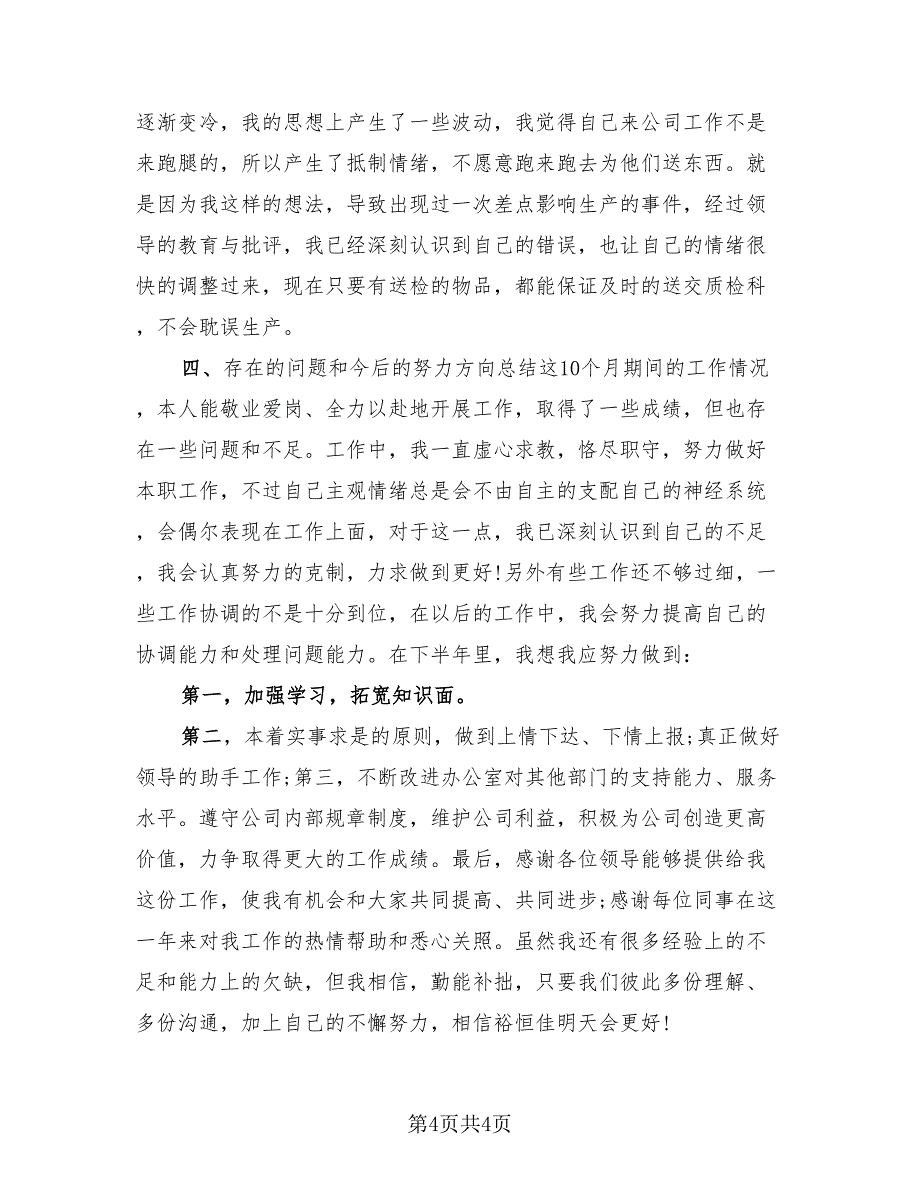 逐渐变冷，我的思想上产生了一些波动，我觉得自己来公司工作不是
来跑腿的，所以产生了抵制情绪，不愿意跑来跑去为他们送东西。就
是因为我这样的想法，导致出现过一次差点影响生产的事件，经过领
导的教育与批评，我已经深刻认识到自己的错误，也让自己的情绪很
快的调整过来，现在只要有送检的物品，都能保证及时的送交质检科
，不会耽误生产。
四、存在的问题和今后的努力方向总结这10个月期间的工作情况
，本人能敬业爱岗、全力以赴地开展工作，取得了一些成绩，但也存
在一些问题和不足。工作中，我一直虚心求教，恪尽职守，努力做好
本职工作，不过自己主观情绪总是会不由自主的支配自己的神经系统
，会偶尔表现在工作上面，对于这一点，我已深刻认识到自己的不足
，我会认真努力的克制，力求做到更好!另外有些工作还不够过细，一
些工作协调的不是十分到位，在以后的工作中，我会努力提高自己的
协调能力和处理问题能力。在下半年里，我想我应努力做到：
第一，加强学习，拓宽知识面。
第二，本着实事求是的原则，做到上情下达、下情上报;真正做好
领导的助手工作;第三，不断改进办公室对其他部门的支持能力、服务
水平。遵守公司内部规章制度，维护公司利益，积极为公司创造更高
价值，力争取得更大的工作成绩。最后，感谢各位领导能够提供给我
这份工作，使我有机会和大家共同提高、共同进步;感谢每位同事在这
一年来对我工作的热情帮助和悉心关照。虽然我还有很多经验上的不
足和能力上的欠缺，但我相信，勤能补拙，只要我们彼此多份理解、
多份沟通，加上自己的不懈努力，相信裕恒佳明天会更好!
第4页共4页